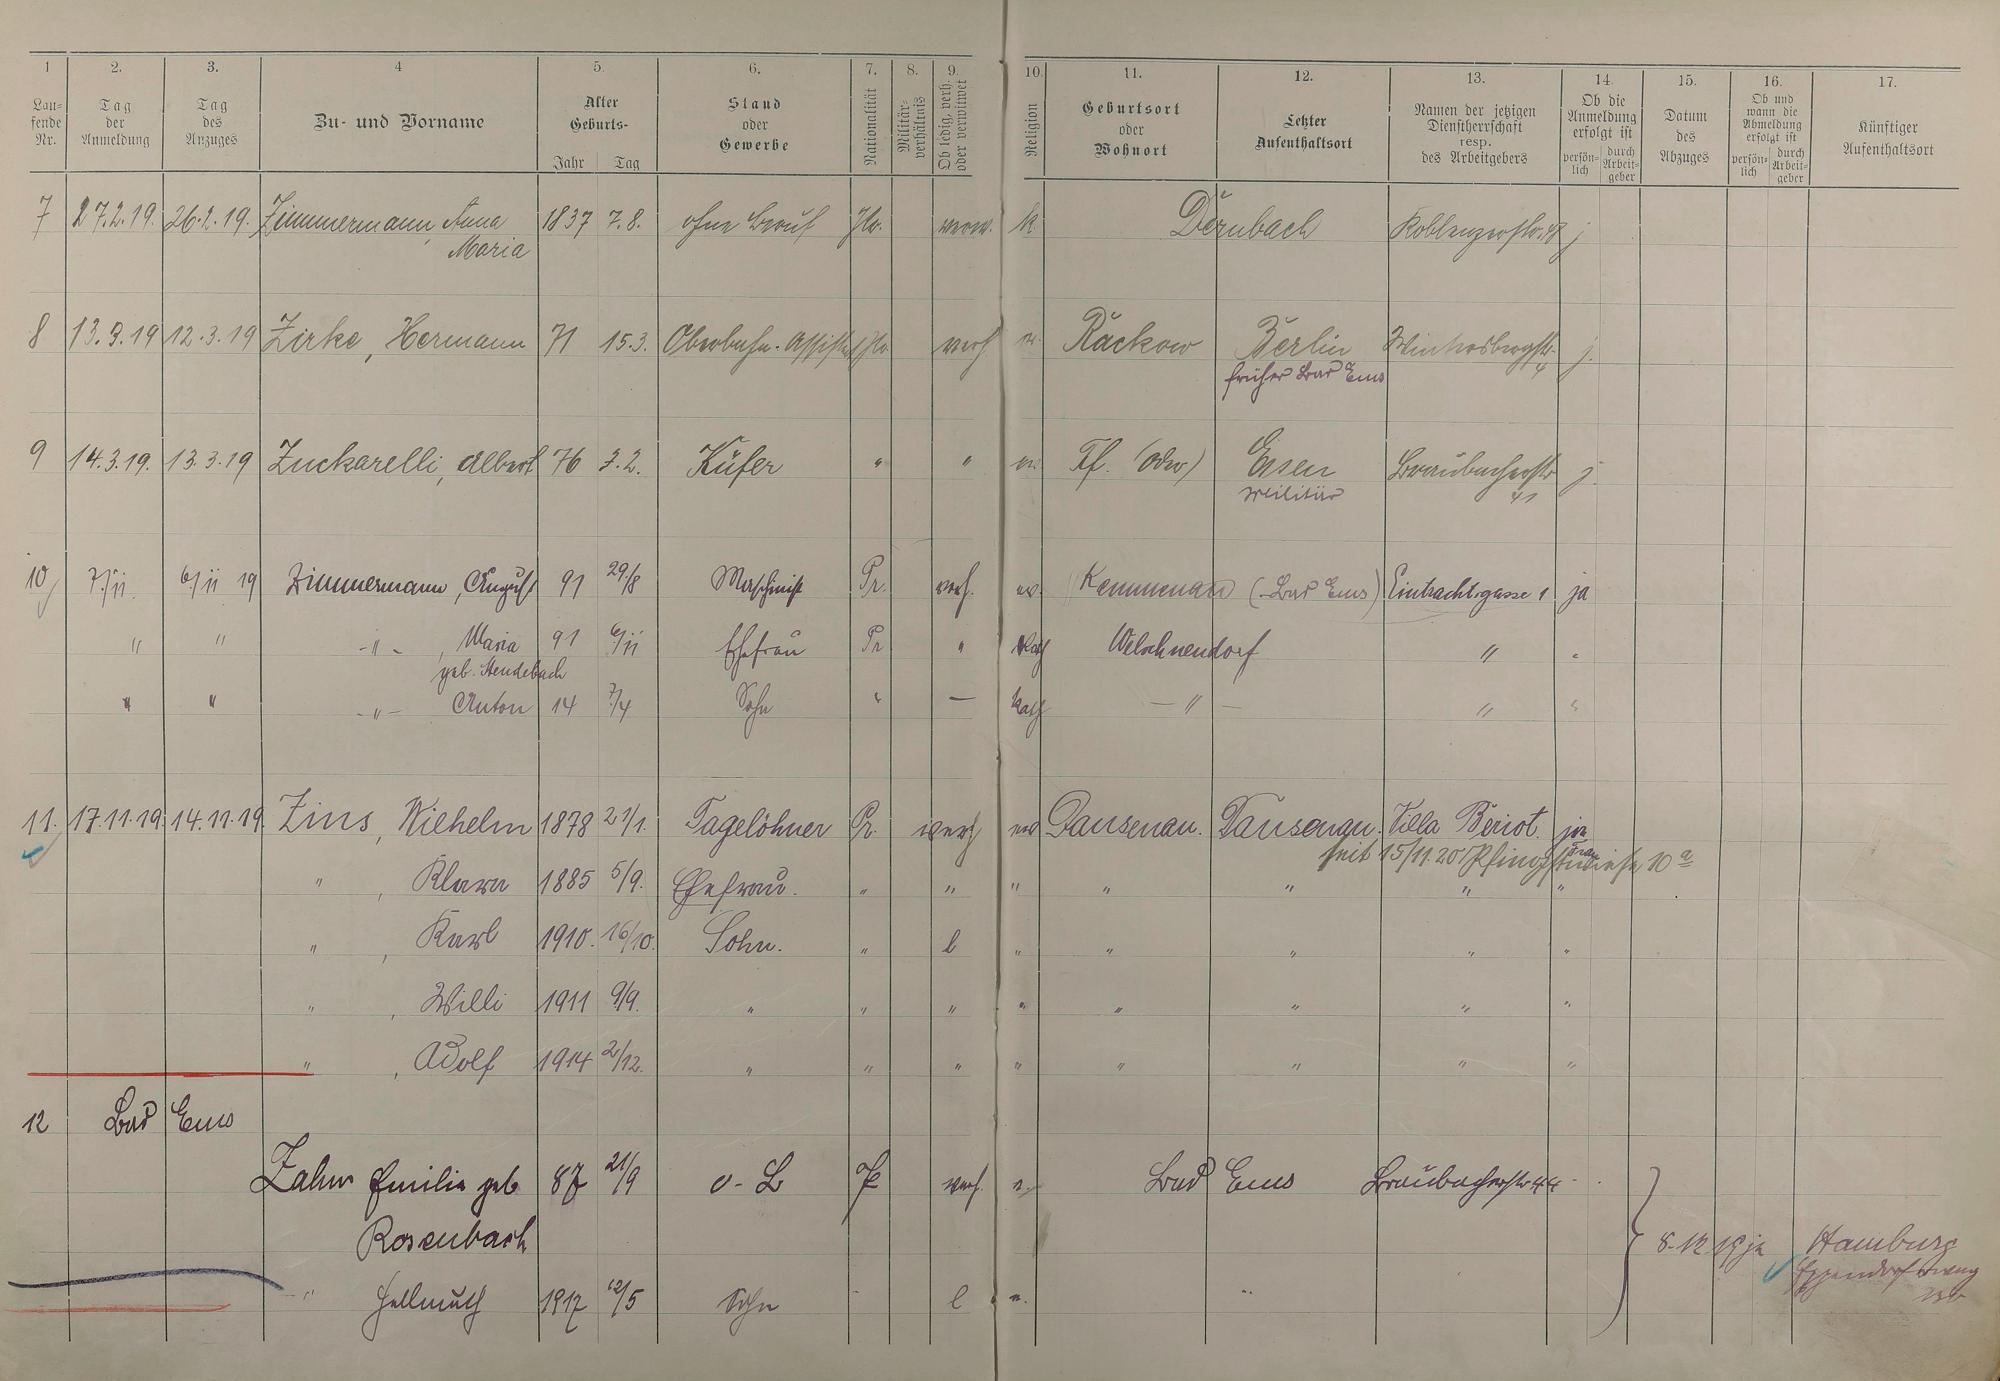 1 2. 3. 4 5. 6. 7. 8. 9. 10. 11. 12. 13. 14. 15. 16. 17.
Lau-
fende
Nr.
Tag
der
Anmeldung
Tag
des
Anzuges
Zu- und Vorname
Alter
Geburts-
Jahr Tag
Stand
oder
Gewerbe
Nationalität
Militär-
verhältnis
Ob ledig, verh.
oder verwitwet
Religion
Geburtsort
oder
Wohnort
Letzter
Aufenthaltsort
Namen der jetzigen
Dienstherrschaft
resp.
des Arbeitgebers
Ob die
Anmeldung
erfolgt ist
persön-
lich
durch
Arbeit-
geber
Datum
des
Abzuges
Ob und
wann die
Abmeldung
erfolgt ist
persön-
lich
durch
Arbeit-
geber
Künftiger
Aufenthaltsort
7 27.2.19. 26.2.19. Zimmermann, Anna 1837 7.8. ohne Beruf verw. k. Dernbach Koblenzerstr. j
Maria
8 13.3.19 12.3.19 Zirke, Hermann 71 15.3. Oberbahn-Assist. verh Rackow Berlin Wintersbergstr. j.
früher Bad Ems 4
9 14.3.19. 13.3.19 Zuckarelli, Albert 76 7.2. Küfer " " Ff. (Oder) Essen Braubacherstr j.
Militär 41
10 7/11. 6/11 19 Zimmermann, August 91 29./8 Maschinist Pr. verh. ev. Kemmenau (Bad Ems) Eintrachtgasse 1 ja
" " -"- , Maria 91 6/11 Ehefrau Pr " Kath Welschneudorf " "
geb. Hendebach
" " -"- Anton 14 7/4 Sohn " — kath —"— " "
11. 17.11.19. 14.11.19. Zins, Wilhelm 1878 21/1. Tagelöhner Pr. verh ev Dausenau. Dausenau. Villa Beriot. ja
seit 15/11.20 Pfingstwiese 10a
" , Klara 1885 5/9. Ehefrau. " " " " " " "
" , Karl 1910. 16/10. Sohn. " l " " " " "
" , Willi 1911 9/9. " " " " " " " "
" , Adolf 1914 2/12. " " " " " " " "
12 Bad Ems
Zahn Emilie geb 87 21/9 o-B P verh. e. Bad Ems Braubacherstr 44
Rosenbach
8-12 19 ja Hamburg
Eppendorferweg
" Hellmuth 1917 12/5 Sohn l e. "